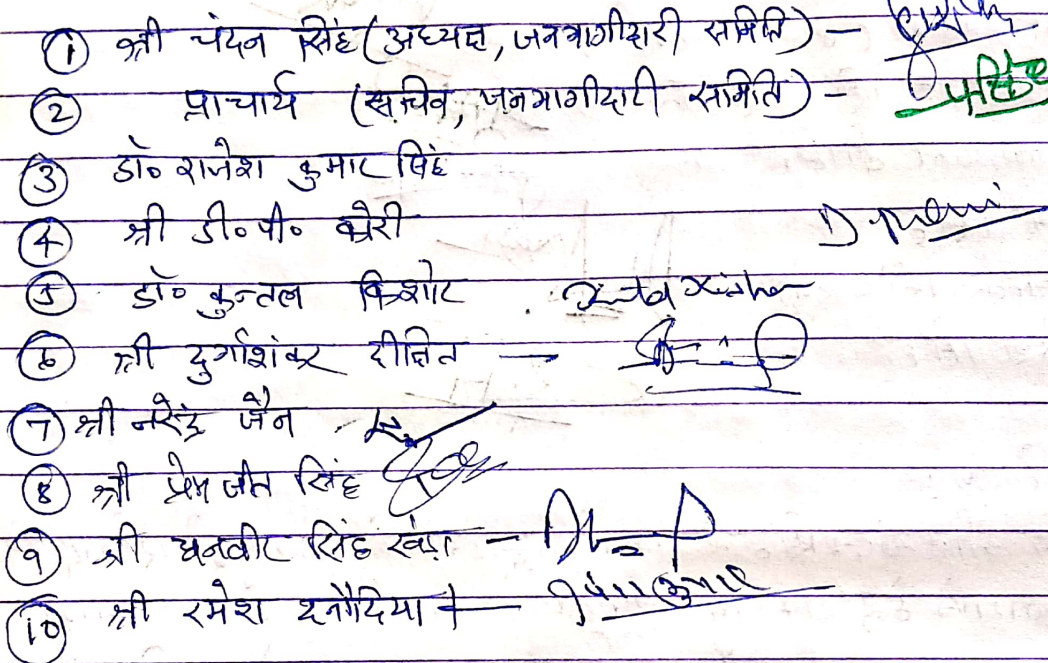 ① श्री चंदन सिंह (अध्यक्ष, जनभागीदारी समिति) –
② प्राचार्य (सचिव, जनभागीदारी समिति) –
③ डॉ० राजेश कुमार सिंह
④ श्री डी० पी०
⑤ डॉ० कुन्तल किशोर
⑥ श्री दुर्गाशंकर दीक्षित –
⑦ श्री नरेन्द्र जैन
⑧ श्री प्रेमजीत सिंह
⑨ श्री धनवीर सिंह –
⑩ श्री रमेश दनौदिया –